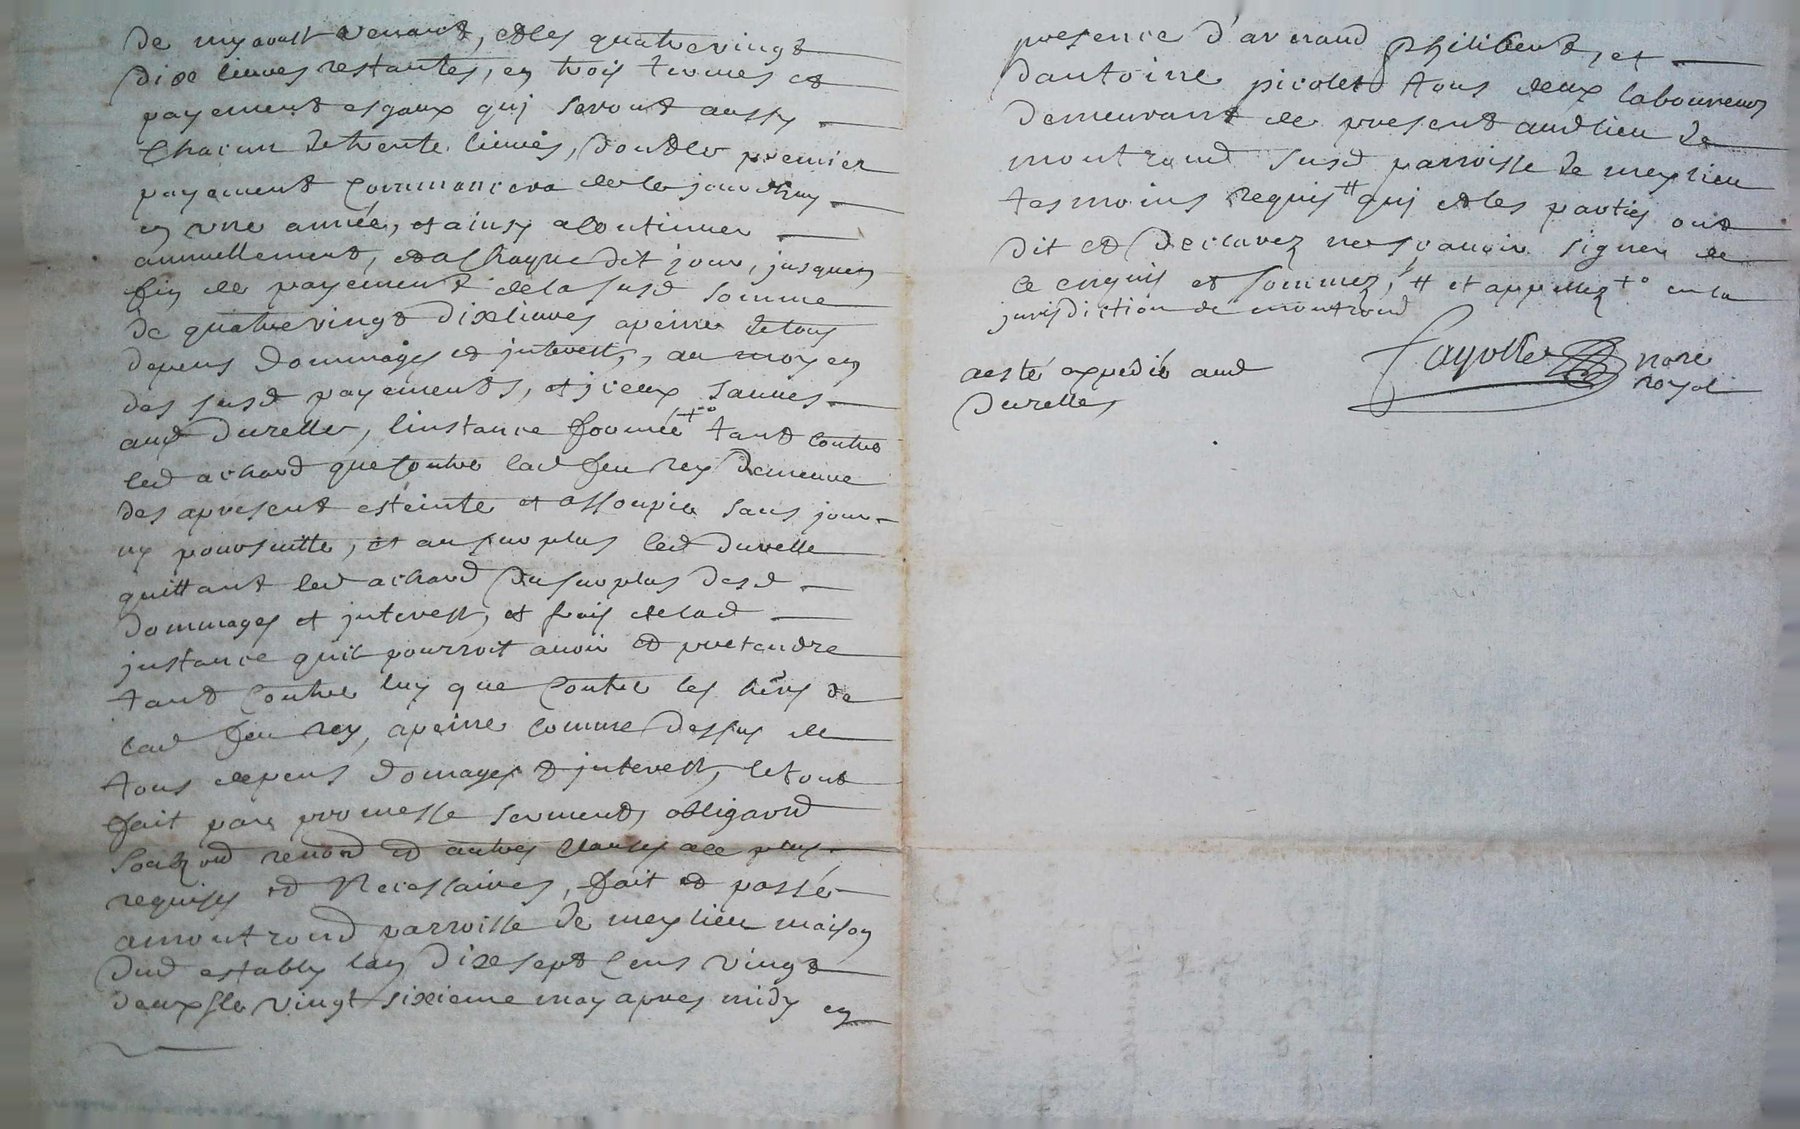 de myaoust venant, et les quatrevingt
dix livres restantes, en trois termes et
payement esgaux quj seront aussy
chacun de trente livres, dont le premier
payement commancera de ce jourdhuy
en une année, et ainsy a continuer
annuellement, et a chaque dit jour, jusques
fin de payement de la susd somme
de quatrevingt dix livres a peine de tous
depens dommages et jnterest, au moyen
des susd payements, et jceux sauves
aud Durelle, linstance formée +° tant contre
led achard que contre lad feu rey demeure
des apresent esteinte et assoupie sans jour
ny poursuitte, et au surplus led durelle
quittant led achard du surplus desd
dommages et jnterest, et frais de lad
jnstance quil pourroit avoir et pretendre
tant contre luy que contre les hers de
lad feu rey, a peine comme dessus de
tous depens domages et jnterest, le tout
fait par promesse serment, obligaond
renond et autres clauses a ce plus
requises et Necessaires, fait et passé
a montrond parroisse de meylieu maison
dud estably lan dixsept cens vingt
deux le vingt sixieme may apres midy en
presence d'arnaud philibert, et
dantoine picolet tous deux laboureurs
demeurant de present aud lieu de
montrond susd parroisse de meylieu
tesmoins requis # quj et les parties ont
dit et declarez ne sçavoir signer de
ce enquis et sommez, # et appellez +° en la
jurisdiction de montrond
aesté expedié aud
Durelle
Fayolle nore
royal